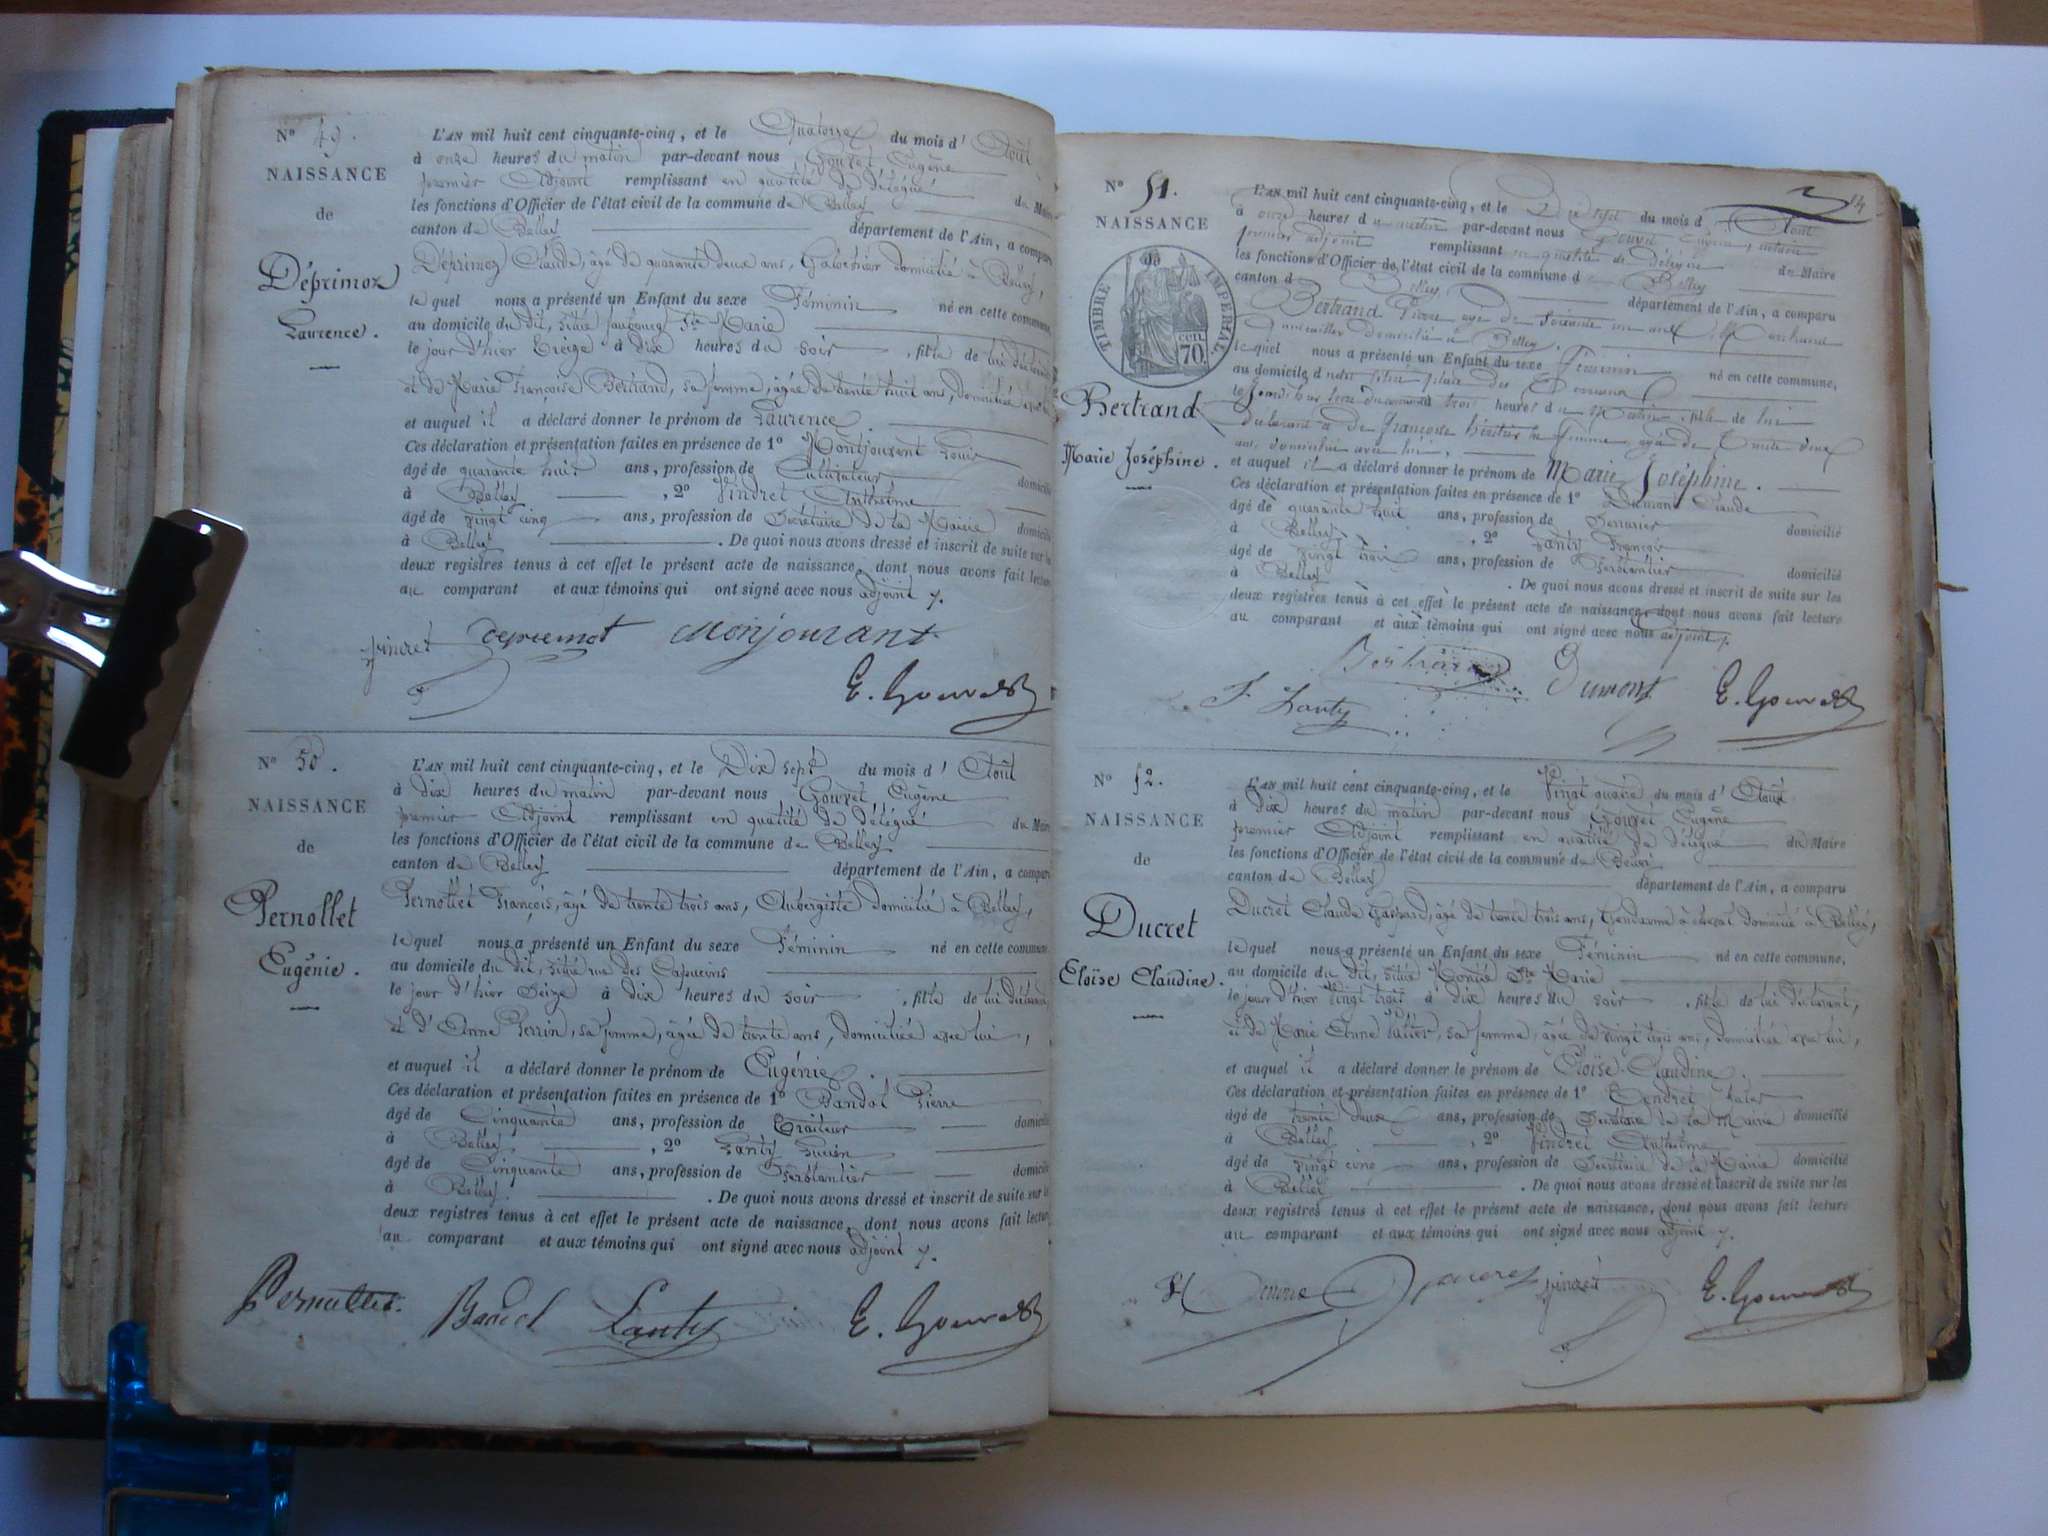 N° 49.
NAISSANCE
de
Déprimoz
Laurence.
L'AN mil huit cent cinquante-cinq, et le Quatorze du mois d' Août
à onze heures du matin par-devant nous Gouvet Eugène
premier Adjoint remplissant en qualité de délégué du Maire
les fonctions d'Officier de l'état civil de la commune de Belley
canton de Belley département de l'Ain, a comparu
Déprimoz Claude, âgé de quarante deux ans, domicilié à Belley,
lequel nous a présenté un Enfant du sexe Féminin né en cette commune,
au domicile du dit, situé faubourg Ste Marie
le jour d'hier treize à dix heures du soir, fille de lui déclarant
et de Marie Françoise Bertrand, sa femme, âgée de trente huit ans, domiciliée avec lui
et auquel il a déclaré donner le prénom de Laurence.
Ces déclaration et présentation faites en présence de 1° Montjouvent Louis
âgé de quarante huit ans, profession de Cultivateur domicilié
à Belley, 2° Jindret Anthelme
âgé de vingt cinq ans, profession de Secrétaire de la Mairie domicilié
à Belley. De quoi nous avons dressé et inscrit de suite sur les
deux registres tenus à cet effet le présent acte de naissance, dont nous avons fait lecture
au comparant et aux témoins qui ont signé avec nous adjoint
E. Gouvet
N° 50.
NAISSANCE
de
Pernollet
Eugénie.
L'AN mil huit cent cinquante-cinq, et le Dix sept du mois d' Août
à dix heures du matin par-devant nous Gouvet Eugène
premier Adjoint remplissant en qualité de délégué du Maire
les fonctions d'Officier de l'état civil de la commune de Belley
canton de Belley département de l'Ain, a comparu
Pernollet François, âgé de trente trois ans, Aubergiste domicilié à Belley,
lequel nous a présenté un Enfant du sexe Féminin né en cette commune
au domicile du dit, situé rue des Capucins
le jour d'hier seize à dix heures du soir, fille de lui déclarant
et d'Anne Perrin, sa femme, âgée de trente ans, domiciliée avec lui,
et auquel il a déclaré donner le prénom de Eugénie.
Ces déclaration et présentation faites en présence de 1° Bandol Pierre
âgé de Cinquante ans, profession de Traiteur domicilié
à Belley, 2° Lanty Lucien
âgé de Cinquante ans, profession de Ferblantier domicilié
à Belley. De quoi nous avons dressé et inscrit de suite sur les
deux registres tenus à cet effet le présent acte de naissance, dont nous avons fait lecture
au comparant et aux témoins qui ont signé avec nous adjoint
Lanty E. Gouvet
N° 51.
NAISSANCE
TIMBRE IMPERIAL.
70 cen.
Bertrand
Marie Joséphine.
L'AN mil huit cent cinquante-cinq, et le Dix sept du mois d' Août
à onze heures du matin par-devant nous Gouvet Eugène, notaire
premier adjoint remplissant en qualité de délégué du Maire
les fonctions d'Officier de l'état civil de la commune de Belley
canton de Belley département de l'Ain, a comparu
Bertrand Pierre âgé de soixante un ans, Marchand
Quincailler domicilié à Belley,
lequel nous a présenté un Enfant du sexe Féminin né en cette commune,
au domicile place des Terreaux
trois heures du matin, fille de lui
déclarant et de Françoise sa femme, âgée de trente deux
ans, domiciliée avec lui,
et auquel il a déclaré donner le prénom de Marie Joséphine.
Ces déclaration et présentation faites en présence de 1° Dumont Claude
âgé de quarante huit ans, profession de Serrurier domicilié
à Belley, 2° Lanty François
âgé de vingt trois ans, profession de Ferblantier domicilié
à Belley. De quoi nous avons dressé et inscrit de suite sur les
deux registres tenus à cet effet le présent acte de naissance, dont nous avons fait lecture
au comparant et aux témoins qui ont signé avec nous adjoint
Bertrand Dumont E. Gouvet
F. Lanty
N° 52.
NAISSANCE
de
Ducret
Eloïse Claudine.
L'AN mil huit cent cinquante-cinq, et le Vingt quatre du mois d' Août
à dix heures du matin par-devant nous Gouvet Eugène
premier Adjoint remplissant en qualité de délégué du Maire
les fonctions d'Officier de l'état civil de la commune de Belley
canton de Belley département de l'Ain, a comparu
Ducret Claude Gaspard, âgé de trente trois ans, Gendarme à cheval domicilié à Belley,
lequel nous a présenté un Enfant du sexe Féminin né en cette commune,
au domicile du dit, situé Montée Ste Marie
le jour d'hier vingt trois à dix heures du soir, fille de lui déclarant,
et de Marie Anne sa femme, âgée de vingt trois ans, domiciliée avec lui,
et auquel il a déclaré donner le prénom de Eloïse Claudine.
Ces déclaration et présentation faites en présence de 1° Tendret
âgé de trente deux ans, profession de Secrétaire de la Mairie domicilié
à Belley, 2° Jindret Anthelme
âgé de vingt cinq ans, profession de Secrétaire de la Mairie domicilié
à Belley. De quoi nous avons dressé et inscrit de suite sur les
deux registres tenus à cet effet le présent acte de naissance, dont nous avons fait lecture
au comparant et aux témoins qui ont signé avec nous adjoint
E. Gouvet